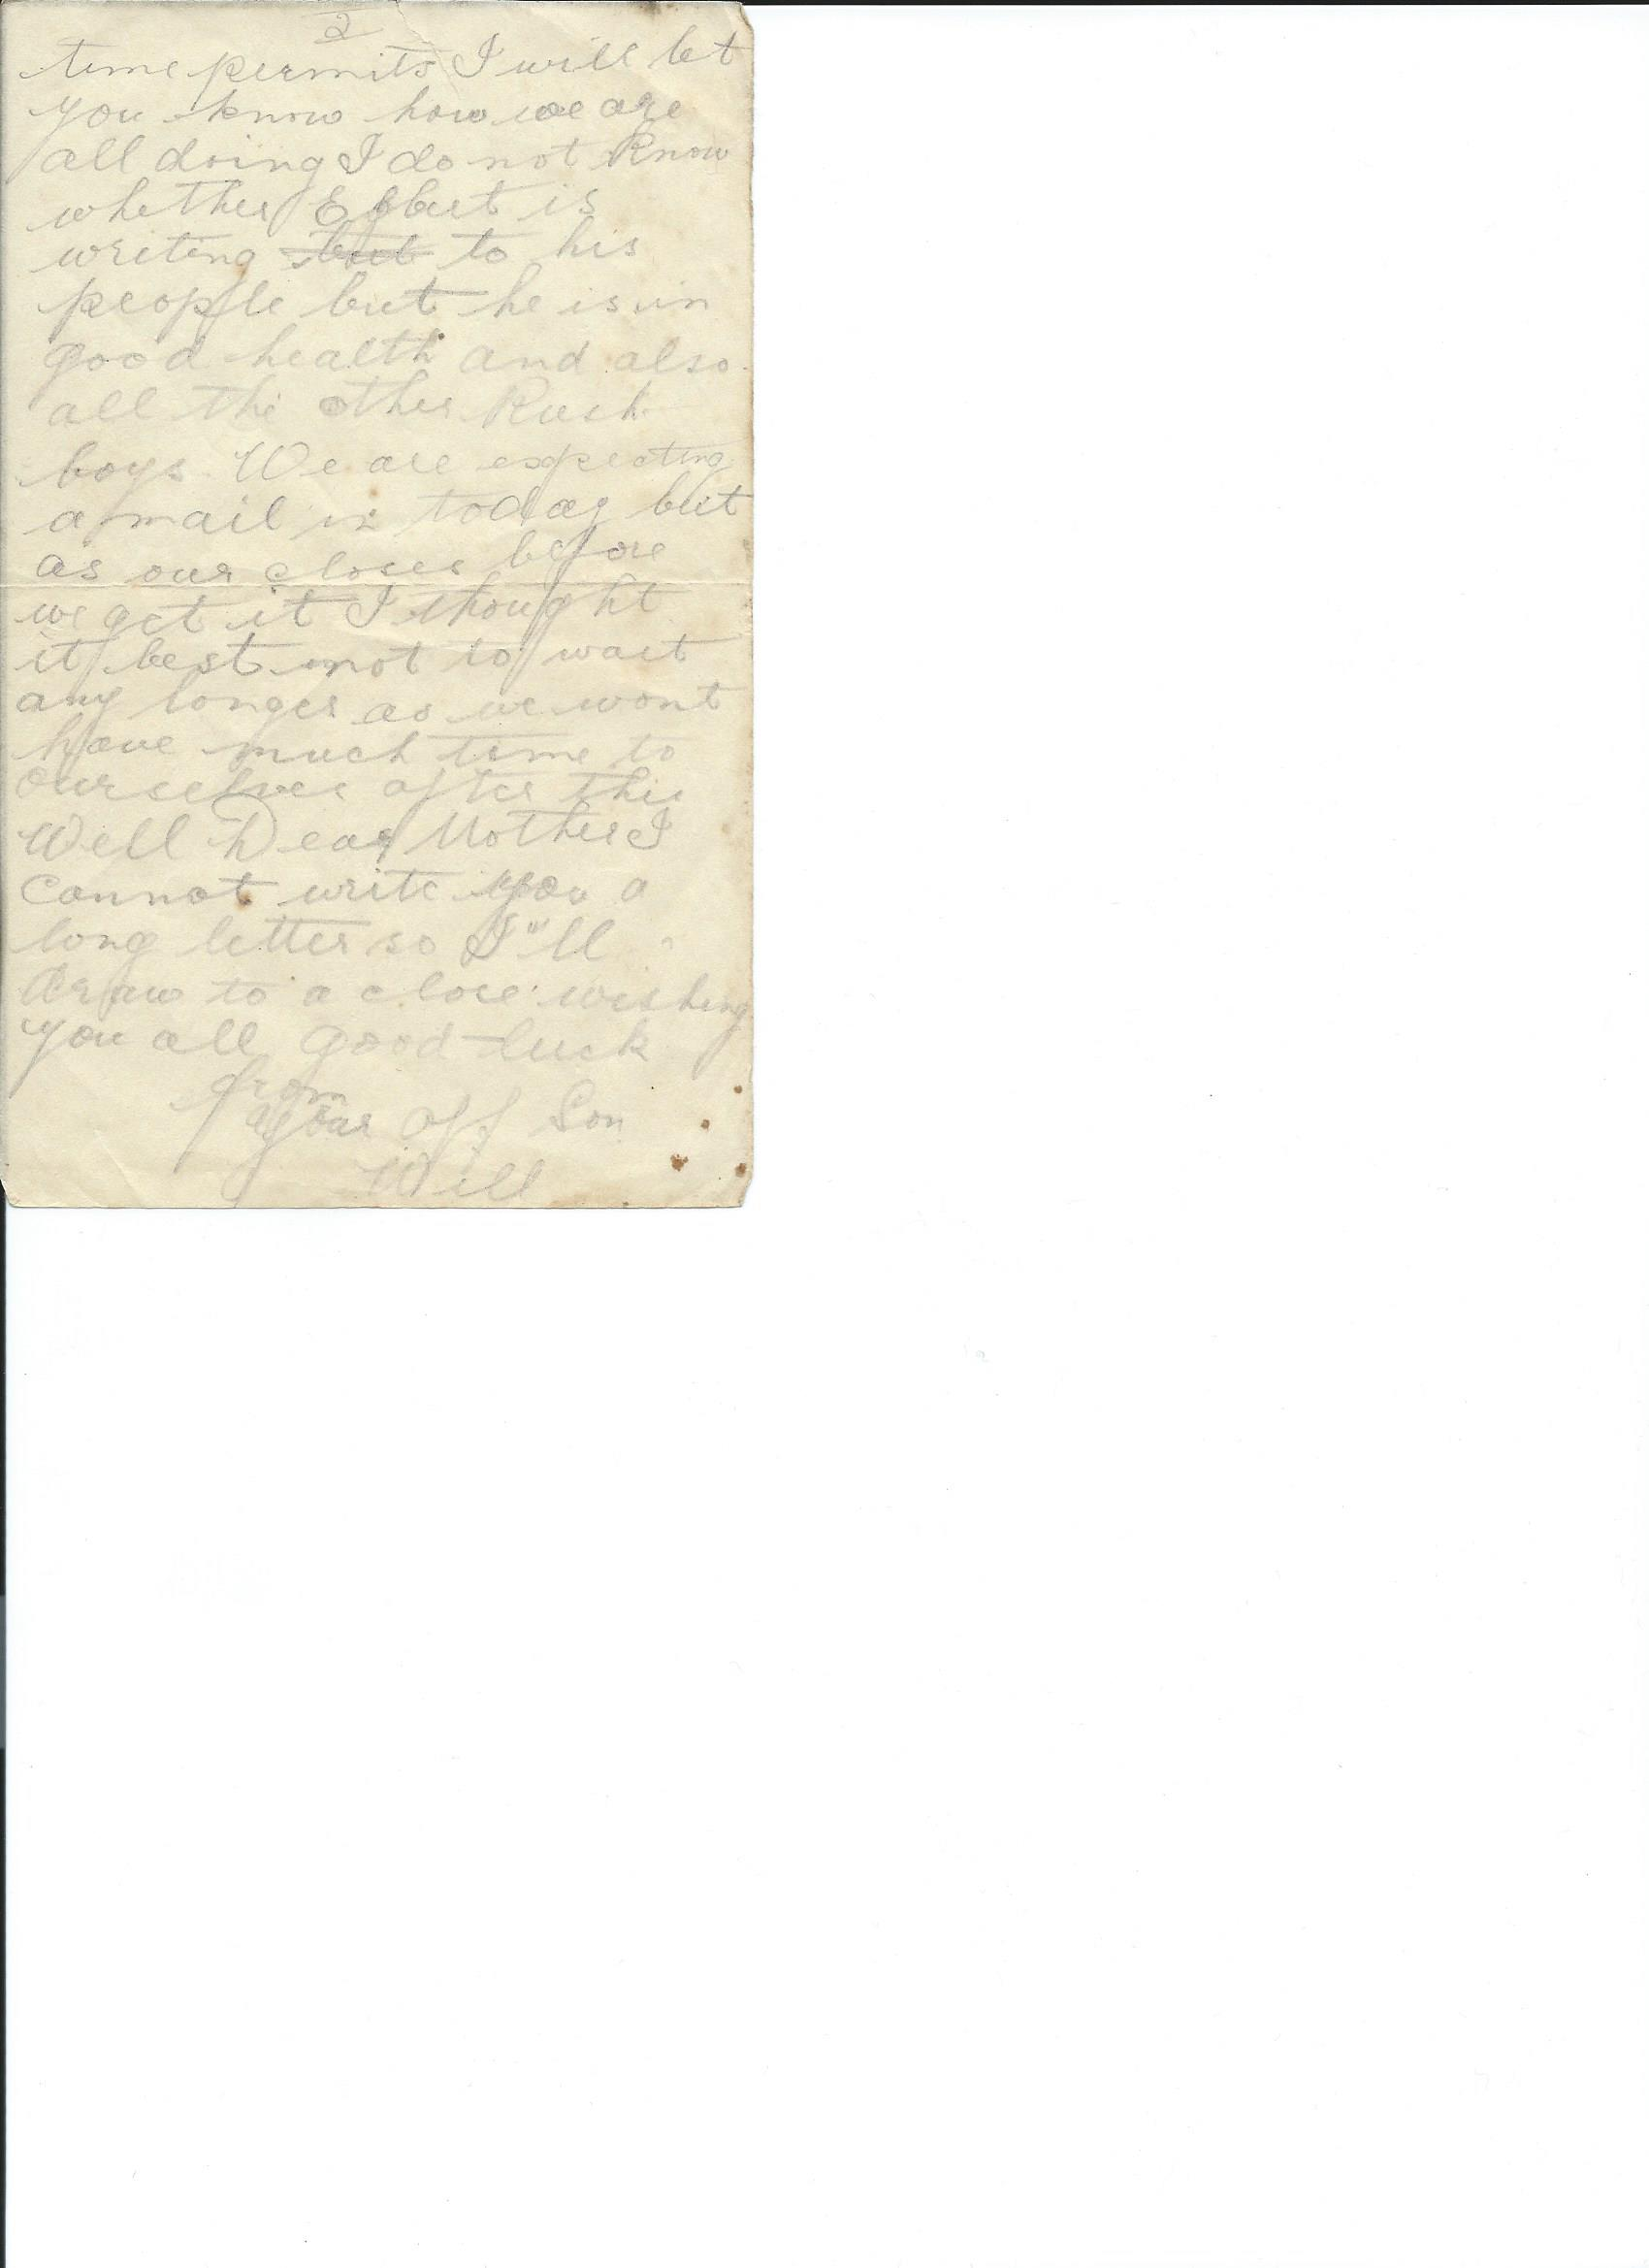 2
time permits I will let
you know how we are
all doing I do not know
whether Egbert is
writing but to his
people but he is in
good health and also
all the other Rush
boys. We are expecting
a mail in today but
as our closes before
we get it I thought
it best not to wait
any longer as we wont
have much time to
ourselves after this
Well Dear Mother I
cannot write you a
long letter so I"ll
draw to a close wishing
you all good luck
from
your aff Son
Will